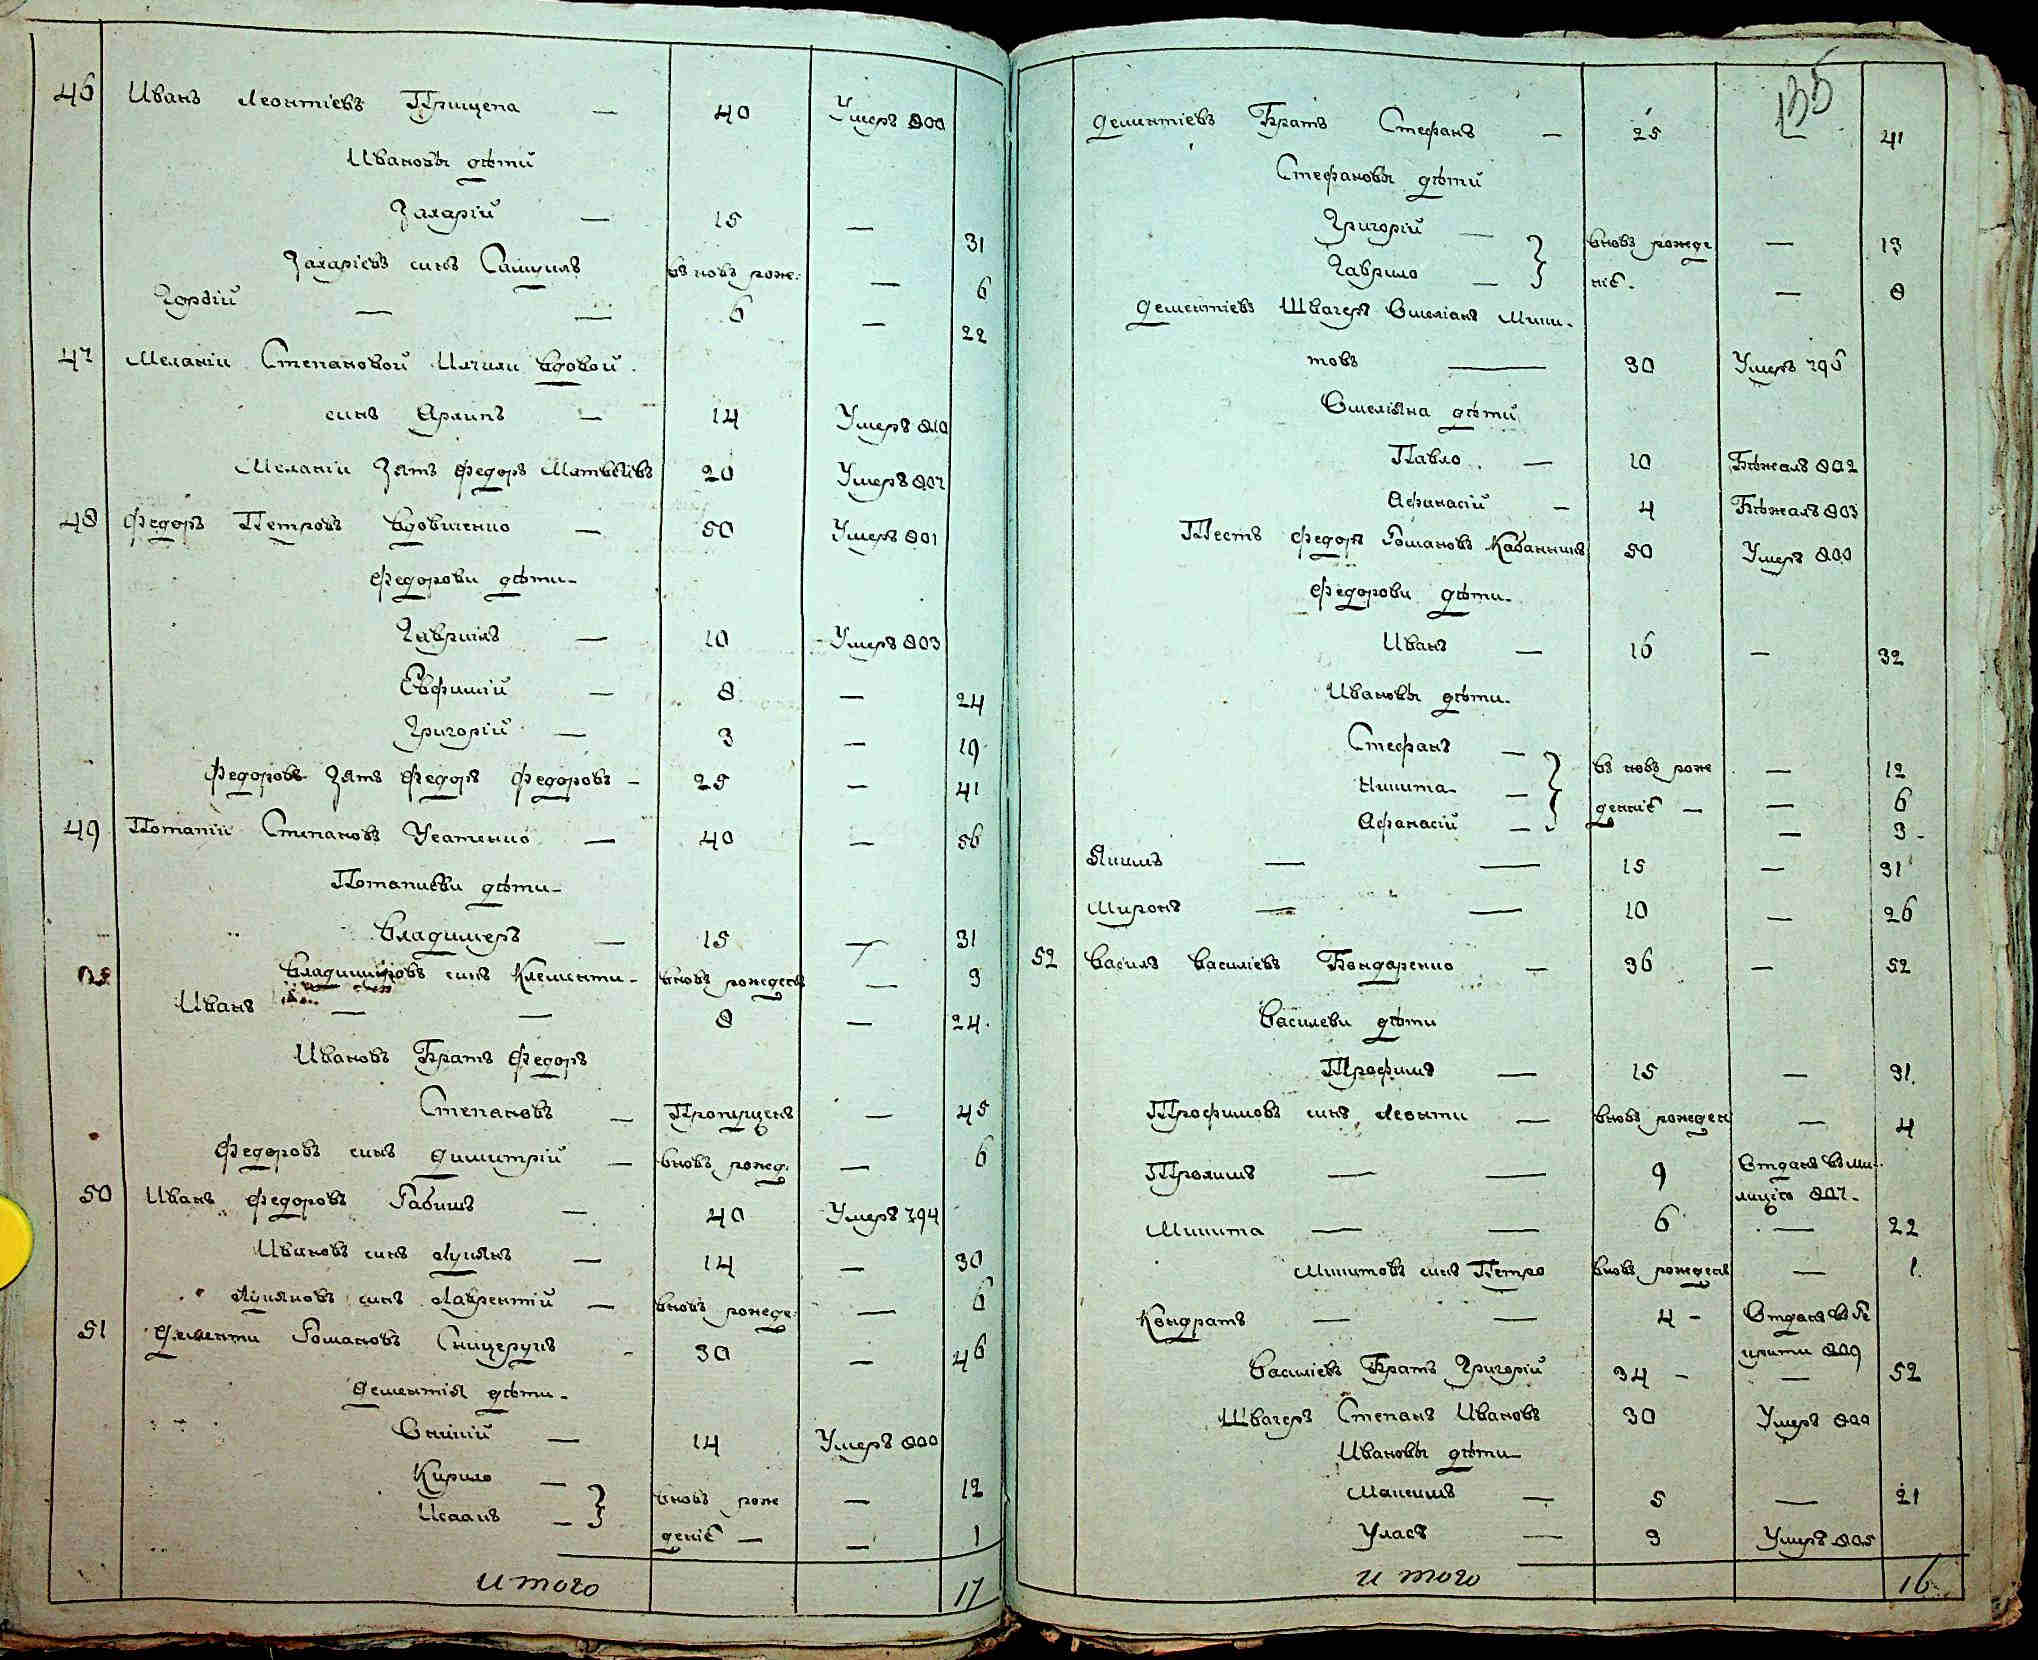 46 Иванъ Леонтіевъ Прищепа — 40 Умеръ 800
Ивановы дѣти
Захарій — 15 — 31
Захаріевъ синъ Самуилъ въ новь роже: — 6
Гордій — — 6 — 22
47 Меланіи Степановой вдовой
синъ Архипъ — 14 Умеръ 810
Меланіи Зять Федоръ Матвѣевъ 20 Умеръ 807
48 Федоръ Петровъ Вдовиченко — 50 Умеръ 801
Федорови дѣти
Гавриилъ — 10 Умеръ 803
Евфимій — 8 — 24
Григорій — 3 — 19
Федоровъ Зять Федоръ Федоровъ — 25 — 41
49 Потапій Степановъ Усатенко — 40 — 56
Потапиеви дѣти
Владимеръ — 15 — 31
Владимировъ синъ Клементи вновь рожденъ — 3
Иванъ — — 8 — 24
Ивановъ Братъ Федоръ
Степановъ — Пропущенъ — 45
Федоровъ синъ Димитрій — вновь рожд: — 6
50 Иванъ Федоровъ Рабишъ — 40 Умеръ 794
Ивановъ синъ Лукянъ — 14 — 30
Лукяновъ синъ Лаврентій — вновь рожде: — 6
51 Дементи Романовъ Сницерукъ 30 — 46
Дементія дѣти
14 Умеръ 800
Кирило — вновь роже — 12
Исаакъ — деніе — — 1
итого 17
135
Дементіевъ Братъ Стефанъ — 25 — 41
Стефановы дѣти
Григорій — вновь рожде — 13
Гаврило — ніе — 8
Дементіевъ Швагеръ Омеліянъ Мики
товъ — 30 Умеръ 796
Омеляна дѣти
Павло — 10 Бѣжалъ 802
Афанасій — 4 Бѣжалъ 803
Тесть Федоръ Романовъ 50 Умеръ 800
Федорови дѣти
Иванъ — 16 — 32
Ивановы дѣти
Стефанъ — въ новь рож — 12
Никита — деніе — — 6
Афанасій — — 3
Якимъ — — 15 — 31
Миронъ — — 10 — 26
52 Василь Василіевъ Бондаренко — 36 — 52
Василеви дѣти
Трофимъ — 15 — 31
Трофимовъ синъ Леонти — вновь рожден — 4
Трохимъ — — 9 Отданъ въ ми
лицію 807
Микита — — 6 — 22
Микитовъ синъ Петро вновь рожденъ — 1
Кондратъ — — 4 — Отданъ въ Ре
крути 809
Василіевъ Братъ Григорій 34 — — 52
Швагеръ Степанъ Ивановъ 30 Умеръ 800
Ивановы дѣти
Максимъ — 5 — 21
Уласъ — 3 Умеръ 805
итого 16